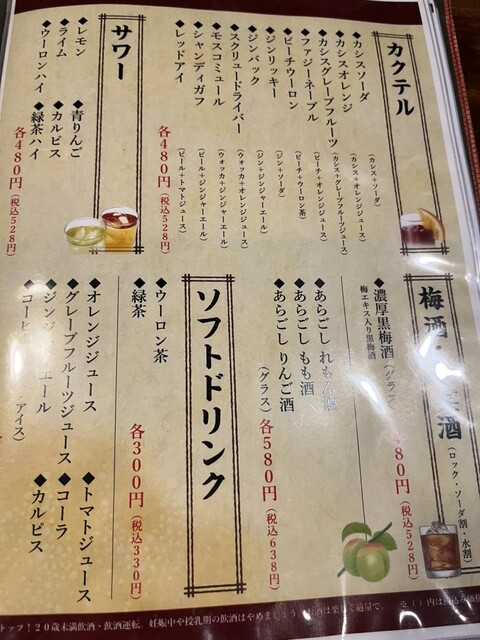 カクテル
◆カシスソーダ（カシス＋ソーダ）
◆カシスオレンジ（カシス＋オレンジジュース）
◆カシスグレープフルーツ（カシス＋グレープフルーツジュース）
◆ファジーネーブル（ピーチ＋オレンジジュース）
◆ピーチウーロン（ピーチ＋ウーロン茶）
◆ジンリッキー（ジン＋ソーダ）
◆ジンバック（ジン＋ジンジャーエール）
◆スクリュードライバー（ウォッカ＋オレンジジュース）
◆モスコミュール（ウォッカ＋ジンジャーエール）
◆シャンディガフ（ビール＋ジンジャーエール）
◆レッドアイ（ビール＋トマトジュース）
各480円（税込528円）
サワー
◆レモン
◆ライム
◆ウーロンハイ
◆青りんご
◆カルピス
◆緑茶ハイ
各480円（税込528円）
梅酒・
酒
（ロック・ソーダ割・水割）
◆濃厚黒梅酒（グラス）
梅エキス入り黒梅酒
80円（税込528円）
◆あらごし れもん酒
◆あらごし もも酒
◆あらごし りんご酒
（グラス）各580円（税込638円）
ソフトドリンク
◆ウーロン茶
◆緑茶
各300円（税込330円）
◆オレンジジュース
◆グレープフルーツジュース
◆ジンジ エール
◆コーヒ アイス）
◆トマトジュース
◆コーラ
◆カルピス
トップ！20歳未満飲酒・飲酒運転、妊娠中や授乳期の飲酒はやめましょう。お酒は楽しく適量で。
（ ）内は税込み価格